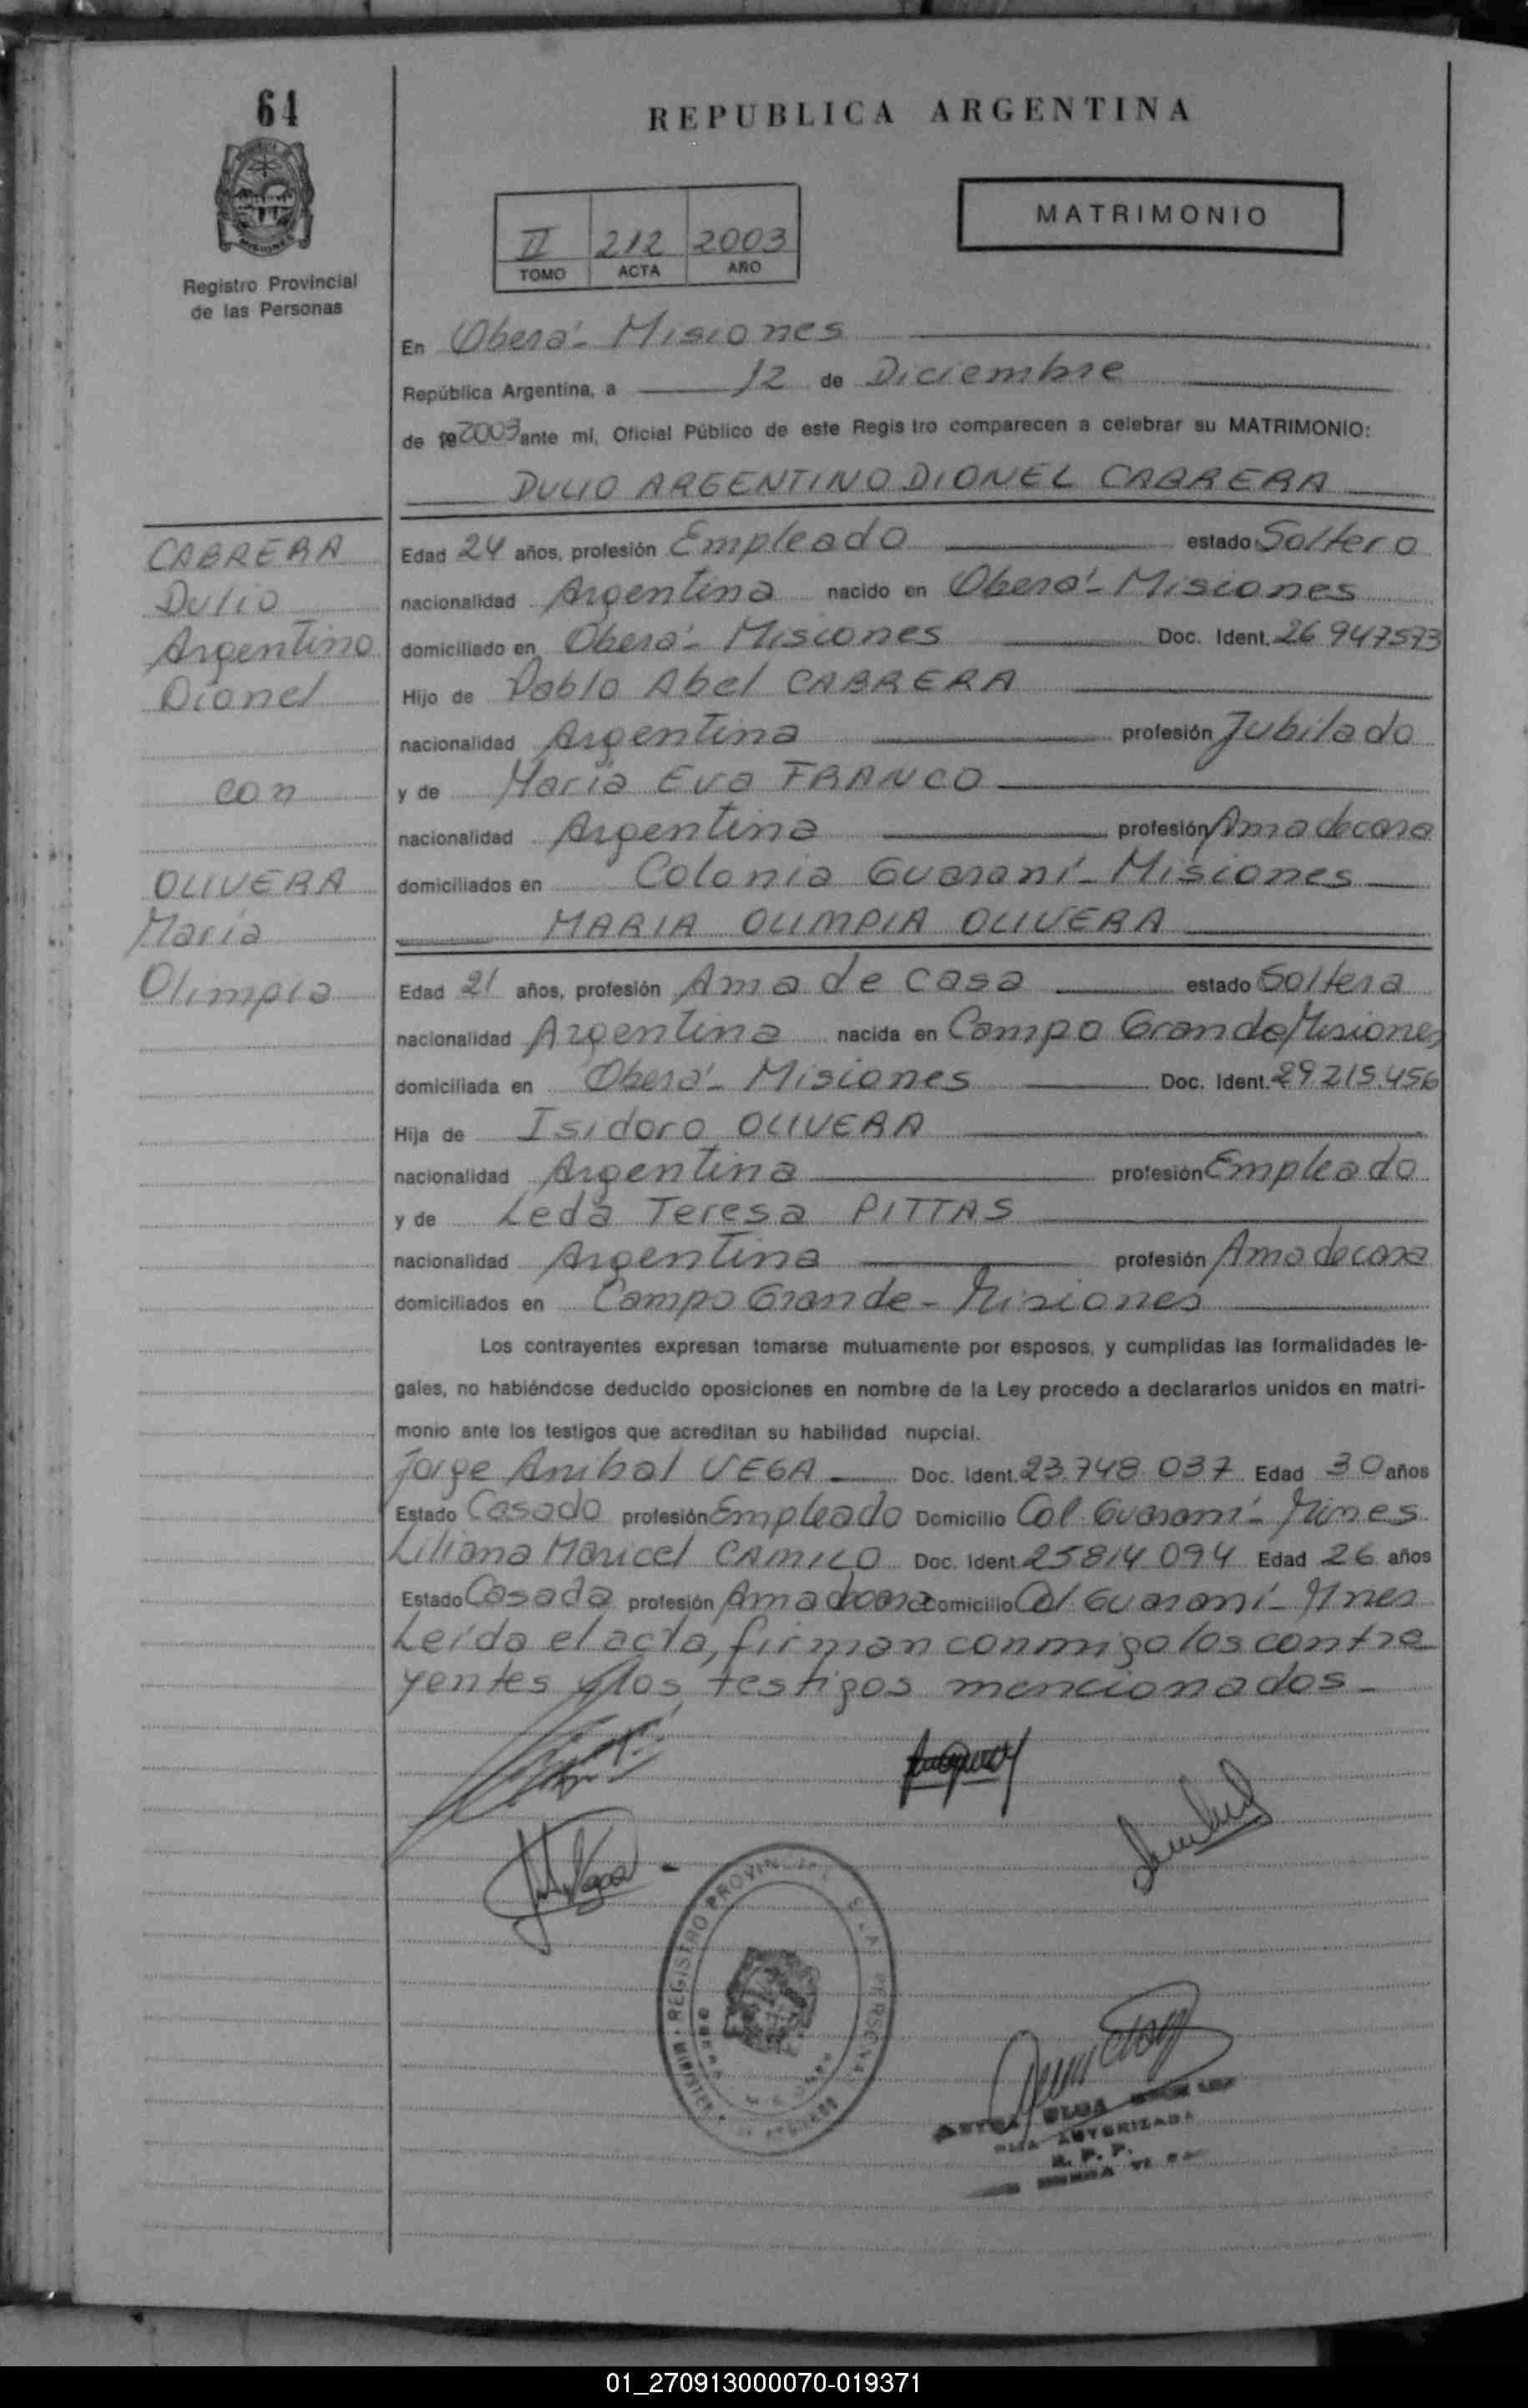 64
REPUBLICA ARGENTINA
MISIONES
Registro Provincial
de las Personas
MATRIMONIO
II 212 2003
TOMO ACTA AÑO
En Oberá - Misiones
República Argentina, a 12 de Diciembre
de 19 2003 ante mí, Oficial Público de este Regis tro comparecen a celebrar su MATRIMONIO:
DULIO ARGENTINO DIONEL CABRERA
CABRERA
Dulio
Argentino
Dionel
con
OLIVERA
María
Olimpia
Edad 24 años, profesión Empleado estado Soltero
nacionalidad Argentina nacido en Oberá - Misiones
domiciliado en Oberá - Misiones Doc. Ident. 26.947573
Hijo de Pablo Abel CABRERA
nacionalidad Argentina profesión Jubilado
y de María Eva FRANCO
nacionalidad Argentina profesión Ama de casa
domiciliados en Colonia Guaraní - Misiones
MARIA OLIMPIA OLIVERA
Edad 21 años, profesión Ama de casa estado Soltera
nacionalidad Argentina nacida en Campo Grande/Misiones
domiciliada en Oberá - Misiones Doc. Ident. 29.215.456
Hija de Isidoro OLIVERA
nacionalidad Argentina profesión Empleado
y de Leda Teresa PITTAS
nacionalidad Argentina profesión Ama de casa
domiciliados en Campo Grande - Misiones
Los contrayentes expresan tomarse mutuamente por esposos, y cumplidas las formalidades le-
gales, no habiéndose deducido oposiciones en nombre de la Ley procedo a declararlos unidos en matri-
monio ante los testigos que acreditan su habilidad nupcial.
Jorge Anibal VEGA Doc. Ident. 23.748.037 Edad 30 años
Estado Casado profesión Empleado Domicilio Col. Guaraní - Mnes.
Liliana Maricel CAMILO Doc. Ident. 25814.094 Edad 26 años
Estado Casada profesión Ama de casa Domicilio Col Guaraní - Mnes
Leída el acta, firman conmigo los contra
yentes y los testigos mencionados -
REGISTRO PROVINCIAL DE LAS PERSONAS
AUTORIZADA
R. P. P.
01_270913000070-019371